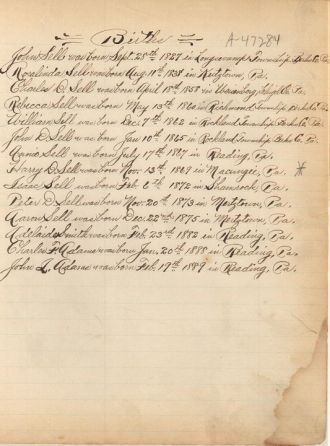 Births
A-47284
John Sell was born Sept. 25th 1827 in Longswamp Township Berks Co. Pa.
Rosalinda Sell was born Aug 11th 1838 in Kutztown, Pa.
Charles D. Sell was born April 15th 1858 in Co. Pa.
Rebecca Sell was born May 13th 1860 in Richmond Township Berks Co. Pa.
William Sell was born Dec. 7th 1862 in Rockland Township Berks Co. Pa.
John D. Sell was born Jan 10th 1865 in Rockland Township Berks Co. Pa.
Anna Sell was born July 17th 1867 in Reading, Pa.
Harry D. Sell was born Nov. 13th 1869 in Macungie, Pa.
Sell was born Feb. 6th 1872 in Shamrock, Pa.
Peter D. Sell was born Nov. 20th 1873 in Mertztown, Pa.
Aaron Sell was born Dec. 22nd 1875 in Mertztown, Pa.
Adelaide Smith was born Feb. 23rd 1882 in Reading, Pa.
Charles F. Adams was born Jan. 20th 1888 in Reading, Pa.
John L. Adams was born Feb. 19th 1889 in Reading, Pa.